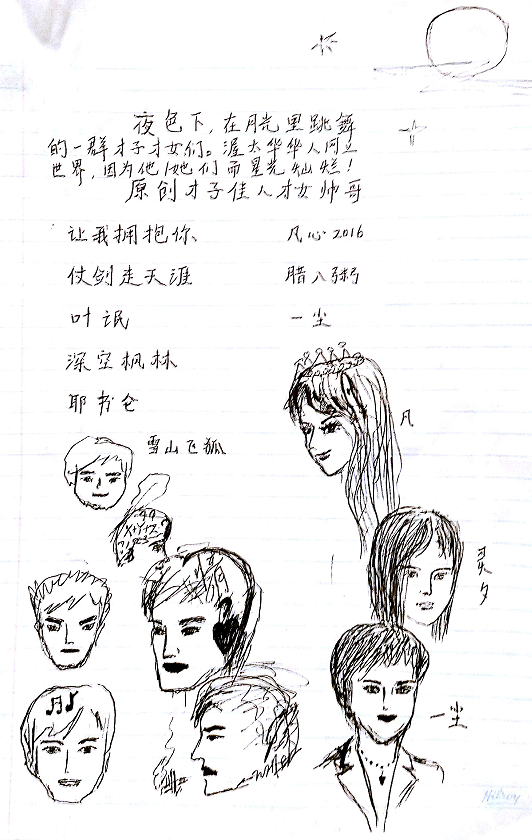 夜色下，在月光里跳舞
的一群才子才女们。渥太华华人网上
世界，因为他/她们而星光灿烂！
原创才子佳人才女帅哥
让我拥抱你 凡心2016
仗剑走天涯 腊八粥
叶氓 一尘
深空枫林
耶书仑
雪山飞狐
凡
灵夕
一尘
Hilroy